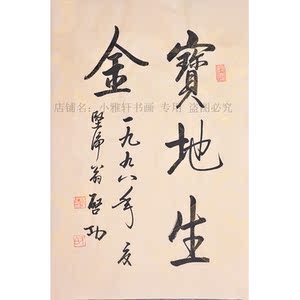 寶地生
金
一九九八年夏
堅淨翁啓功
店铺名：小雅轩书画 专用 盗图必究